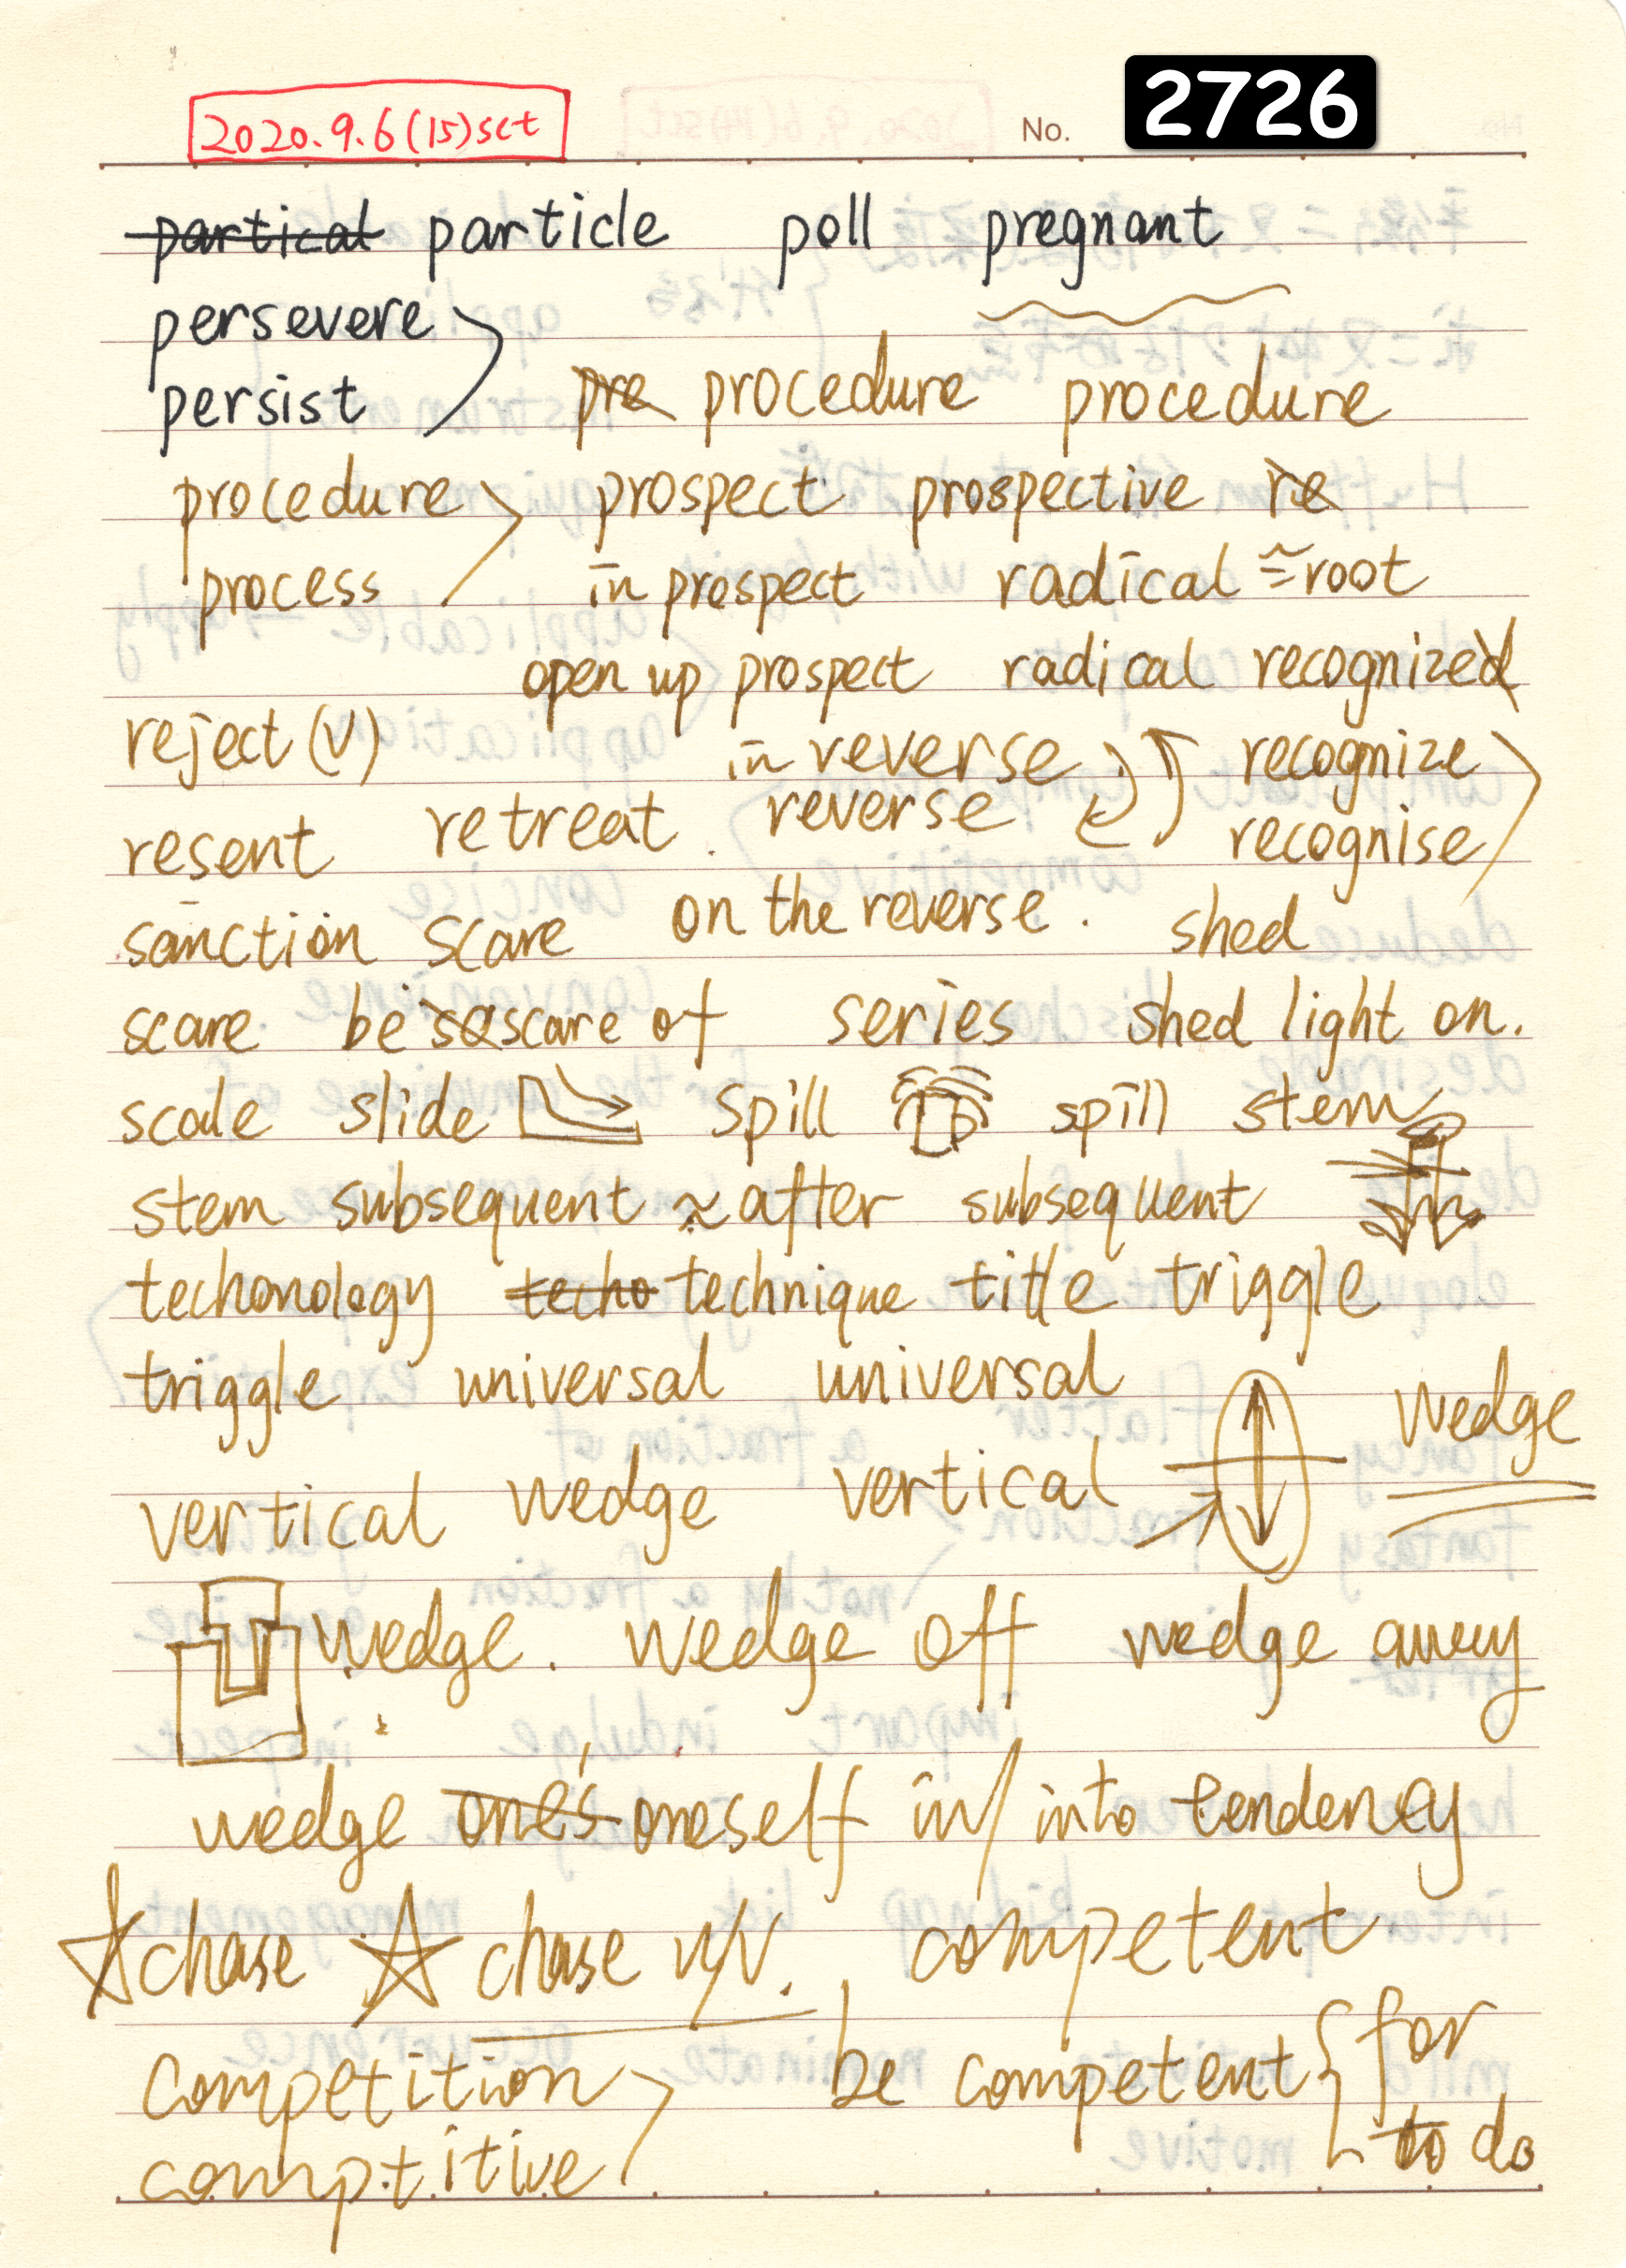 2020.9.6(15)sct No. 2726
partical particle poll pregnant
persevere
persist pre procedure procedure
procedure prospect prospective re
process in prospect radical ≅root
open up prospect radical recognized
reject (v) in reverse recognize
resent retreat. reverse recognise
sanction scare on the reverse. shed
scare be sascare of series shed light on.
scale slide spill spill stem
stem subsequent ≈after subsequent
techonology techo technique title triggle
triggle universal universal
vertical wedge vertical wedge
wedge. wedge off wedge away
wedge one's oneself in/into tendency
chase chase n/v. competent
competition be competent for
comptitive to do